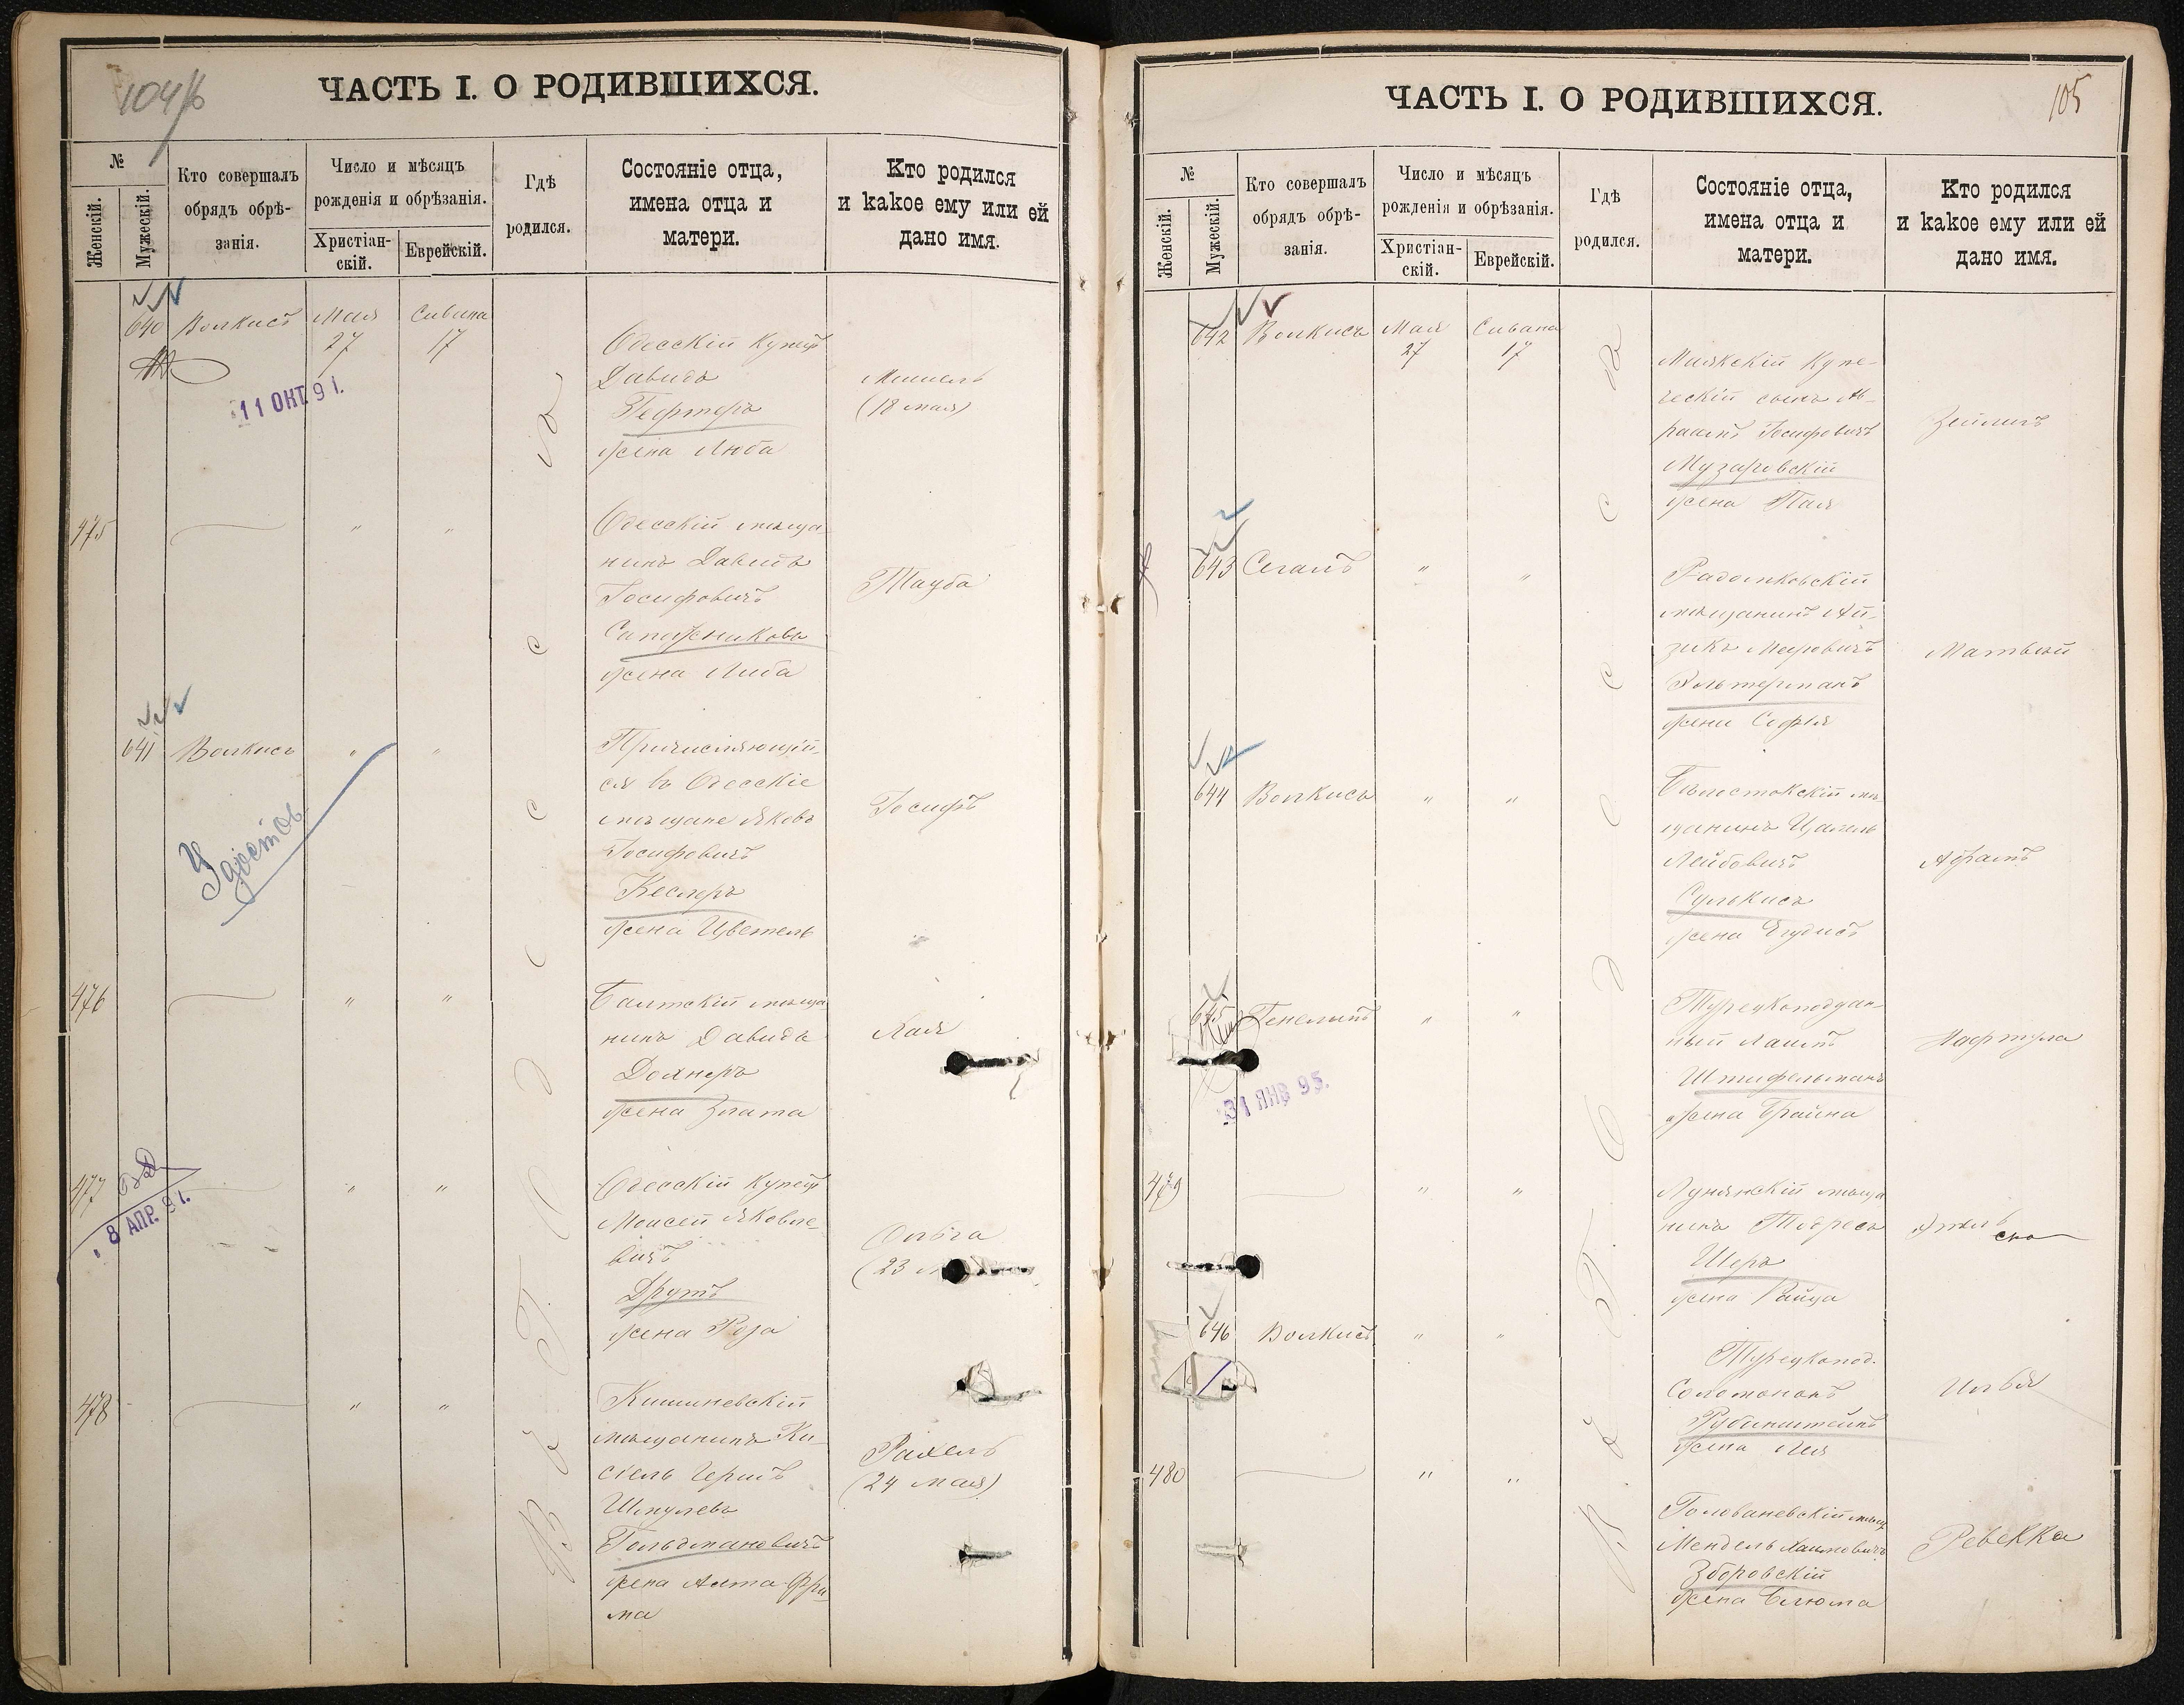 104/б
ЧАСТЬ I. О РОДИВШИХСЯ.
№
Женскій.
Мужескій.
Кто совершалъ
обрядъ обрѣ-
занія.
Число и мѣсяцъ
рожденія и обрѣзанія.
Христіан-
скій.
Еврейскій.
Гдѣ
родился.
Состояніе отца,
имена отца и
матери.
Кто родился
и какое ему или ей
дано имя.
Въ г. Одесса
640 Волкисъ Мая Сивана
27 17
11 ОКТ. 91.
Одесскій Купецъ
Давидъ
Гефтеръ
жена Люба
(18 мая)
475 " "
Одесскій мѣща-
нинъ Давидъ
Іосифовичъ
Сапожниковъ
жена Либа
Тауба
641 Волкисъ " "
Удостов.
Причисляющій-
ся въ Одесскіе
мѣщане Яковъ
Іосифовичъ
Кеслеръ
жена Цветель
Іосифъ
476 " "
Балтскій мѣща-
нинъ Давидъ
Долнеръ
жена Злата
Хая
477 " "
8 АПР. 91.
Одесскій Купецъ
Моисей Яковле-
вичъ
Друтъ
жена Роза
Ольга
(23
478 " "
Кишиневскій
мѣщанинъ Ки-
сіель Гершъ
Шмулевъ
Гольдмановичъ
жена Алта-Фру-
ма
Рахель
(24 мая)
105
ЧАСТЬ I. О РОДИВШИХСЯ.
№
Женскій.
Мужескій.
Кто совершалъ
обрядъ обрѣ-
занія.
Число и мѣсяцъ
рожденія и обрѣзанія.
Христіан-
скій.
Еврейскій.
Гдѣ
родился.
Состояніе отца,
имена отца и
матери.
Кто родился
и какое ему или ей
дано имя.
Въ г. Одесса
642 Волкисъ Мая Сивана
27 17
Маякскій Купе-
ческій сынъ Аб-
рамъ Іосифовичъ
Музаровскій
жена Пая
Зейлигъ
643 Сегалъ " "
мѣщанинъ Ай-
зикъ Меировичъ
жена Софія
Матвѣй
644 Волкисъ " "
Бѣлостокскій мѣ-
щанинъ Цалель
Лейбовичъ
Сулькисъ
жена Егудисъ
Абрамъ
645 " "
31 ЯНВ 95.
Турецкоподдан-
ный Хаимъ
Штифельманъ
жена Брайна
Нафтула
479 " "
мѣща-
нинъ
Шеръ
жена Райца
646 Волкисъ " "
Турецкопод.
Соломонъ
Рубинштейнъ
жена Лея
Илья
480 " "
Голованевскій мѣщ.
Мендель Хаимовичъ
Зборовскій
жена Блюма
Ревекка